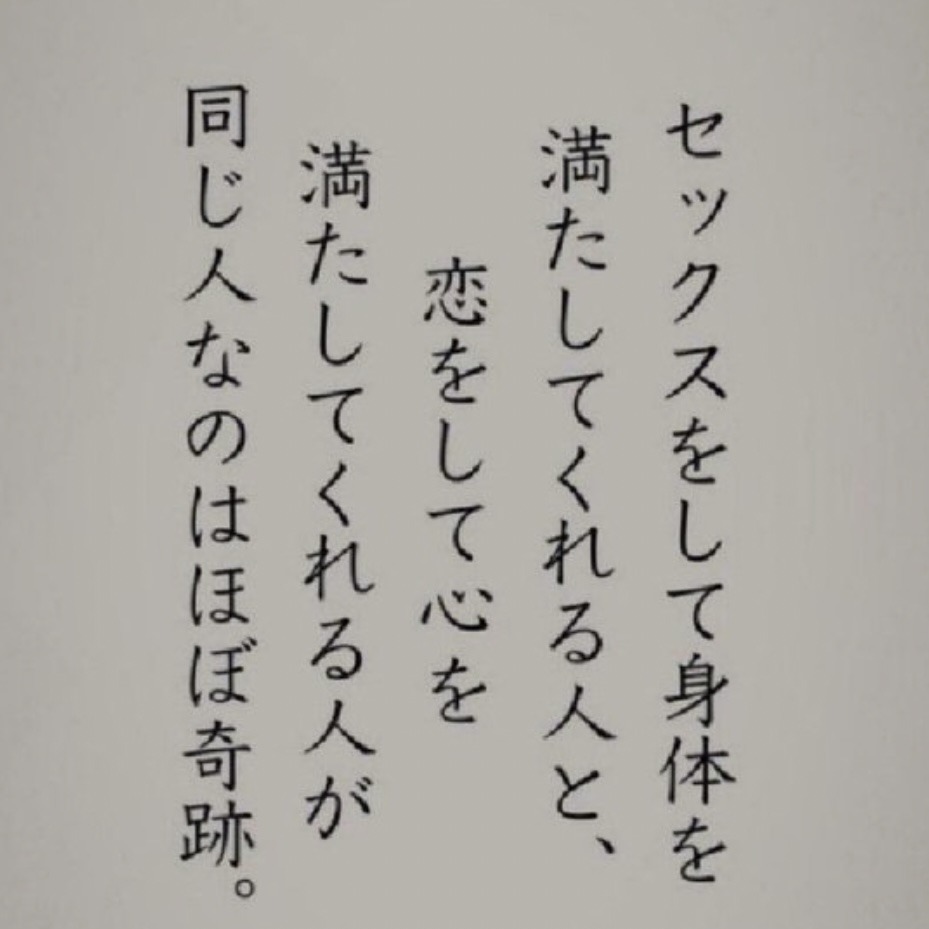 セックスをして身体を
満たしてくれる人と、
恋をして心を
満たしてくれる人が
同じ人なのはほぼ奇跡。